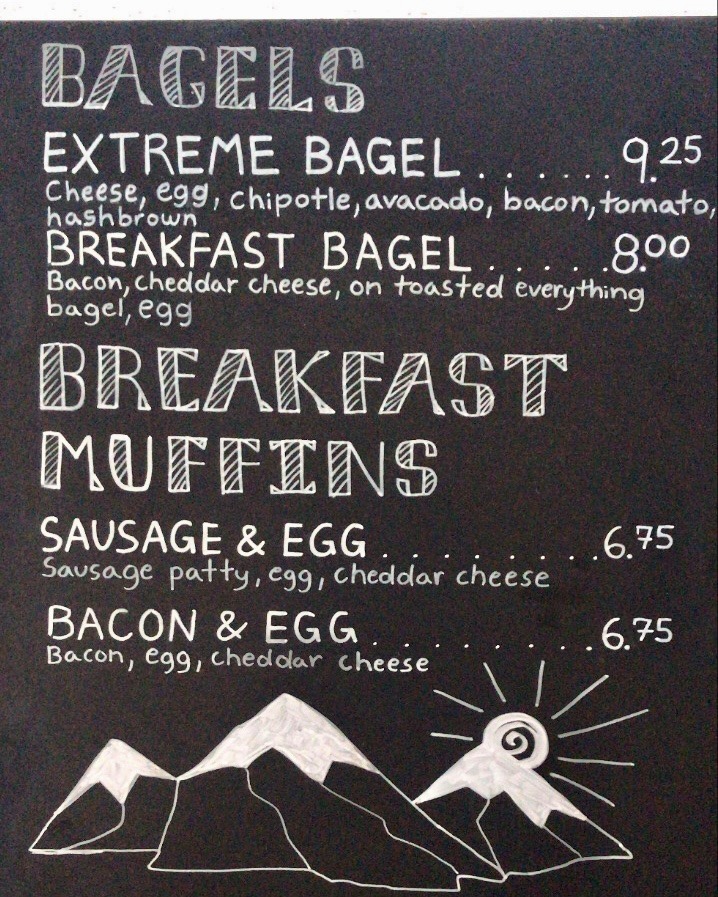 BAGELS
EXTREME BAGEL . . . . . . 9.25
Cheese, egg, chipotle, avacado, bacon, tomato,
hashbrown
BREAKFAST BAGEL . . . . . 8.00
Bacon, cheddar cheese, on toasted everything
bagel, egg
BREAKFAST
MUFFINS
SAUSAGE & EGG . . . . . . . . 6.75
Sausage patty, egg, cheddar cheese
BACON & EGG . . . . . . . . 6.75
Bacon, egg, cheddar cheese